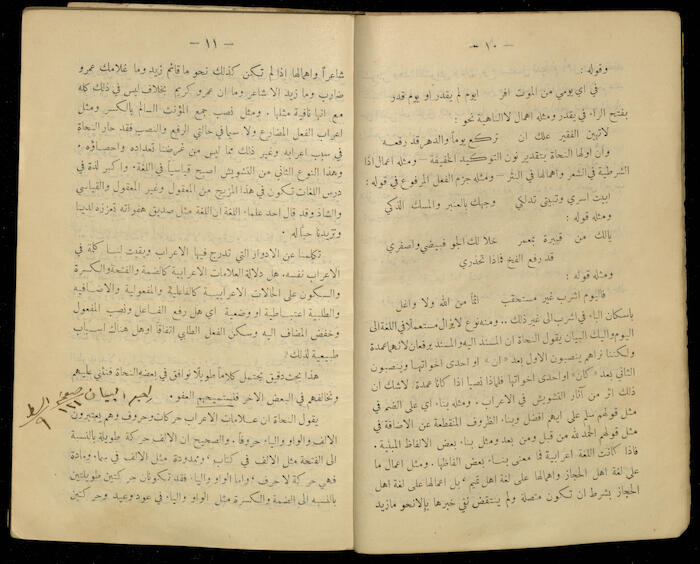 — ١٠ —
وقوله :
في اي يومي من الموت افر ايوم لم يقدر او يوم قدر
بفتح الراء في يقدر ومثله اهمال لا الناهية نحو :
لاتهين الفقير علك ان تركع يوماً والدهر قد رفعه
وان اولها النحاة بتقدير نون التوكيد الخفيفة – ومثله اعمال اذا
الشرطية في الشعر واهمالها في النثر – ومثله جزم الفعل المرفوع في قوله :
ابيت اسري وتبيتي تدلكي وجهك بالعنبر والمسك الذكي
ومثله قوله :
يالك من قبرة بمعمر خلا لك الجو فبيضي واصفري
قد رفع الفخ فماذا تحذري
ومثله قوله :
فاليوم اشرب غير مستحقب اثماً من الله ولا واغل
باسكان الباء في اشرب الى غير ذلك .. ومنه نوع لايزال مستعملا في اللغة الى
اليوم واليك البيان يقول النحاة ان المسند اليه والمسند يرفعان لانهما عمدة
ولكننا نراهم ينصبون الاول بعد «ان» او احدى اخواتها وينصبون
الثاني بعد «كان» او احدى اخواتها فلماذا نصبا اذا كانا عمدة، لاشك ان
ذلك اثر من آثار التشويش في الاعراب . ومثله بناء اي على الضم في
مثل قولهم سلم على ايهم افضل وبناء الظروف المنقطعة عن الاضافة في
مثل قولهم الحمد لله من قبل ومن بعد ومثل بناء بعض الالفاظ المبنية .
فاذا كانت اللغة اعرابية فما معنى بناء بعض الفاظها . ومثل اعمال ما
على لغة اهل الحجاز واهمالها على لغة اهل تميم ، بل اعمالها على لغة اهل
الحجاز بشرط ان تكون متصلة ولم ينتقض نفي خبرها بالا نحو مازيد
— ١١ —
شاعراً واهمالها اذا لم تكن كذلك نحو ما قائم زيد وما غلامك عمرو
ضارب وما زيد الا شاعر وما ان عمرو كريم بخلاف ليس في ذلك كله
مع انها نافية مثلها . ومثل نصب جمع المؤنث السالم بالكسر ومثل
اعراب الفعل المضارع ولا سيما في حالتي الرفع والنصب فقد حار النحاة
في سبب اعرابه وغير ذلك مما ليس من غرضنا تعداده واحصاؤه .
وهذا النوع الثاني من التشويش اصبح قياسياً في اللغة. واكبر لذة في
درس اللغات تكون في هذا المزيج من المعقول وغير المعقول والقياسي
والشاذ وقد قال احد علماء اللغة ان اللغة مثل صديق هفواته تعززه لدينا
وتزيدنا حباً له .
تكلمنا عن الادوار التي تدرج فيها الاعراب وبقيت لنا كلمة في
الاعراب نفسه. هل دلالة العلامات الاعرابية كالضمة والفتحة والكسرة
والسكون على الحالات الاعرابية كالفاعلية والمفعولية والاضافيه
والطلبية اعتباطية او وضعية اي هل رفع الفاعل ونصب المفعول
وخفض المضاف اليه وسكن الفعل الطلبي اتفاقاً او هل هناك اسباب
طبيعية لذلك؟
هذا بحث دقيق يحتمل كلاماً طويلاً نوافق في بعضه النحاة فنثني عليهم
ونخالفهم في البعض الآخر فلنستميحهم العفو .
يقول النحاة ان علامات الاعراب حركات وحروف وهم يعتبرون
الالف والواو والياء حروفاً . والصحيح ان الالف حركة طويلة بالنسبة
الى الفتحة مثل الالف في كتاب ، وممدودة مثل الالف في سماء . ومادة
فهي حركة لا حرف ، واما الواو والياء. فقد تكونان حركتين طويلتين
بالنسبه الى الضمة والكسرة مثل الواو والياء. في عود وعيد وحركتين
راجع البيان صفحة ١٦٦ السطر ٩